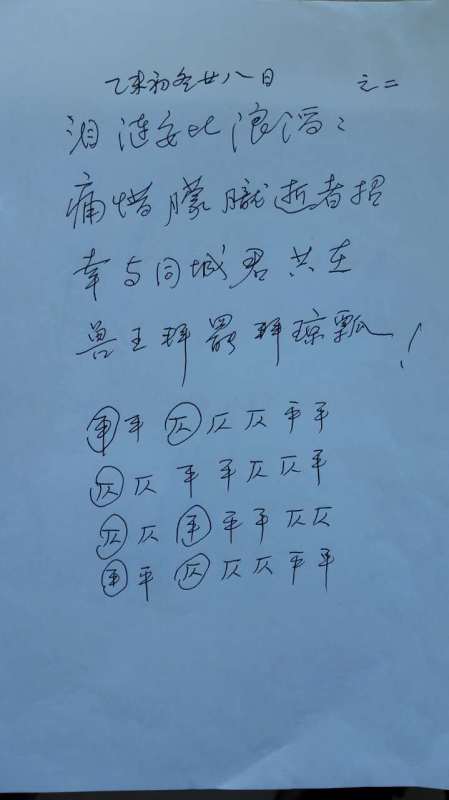 乙未初冬廿八日 之二
泪涟安比浪滔滔
痛惜朦胧逝者招
幸与同城君共在
兽王拜罢拜琼瓢！
平平仄仄仄平平
仄仄平平仄仄平
仄仄平平平仄仄
平平仄仄仄平平